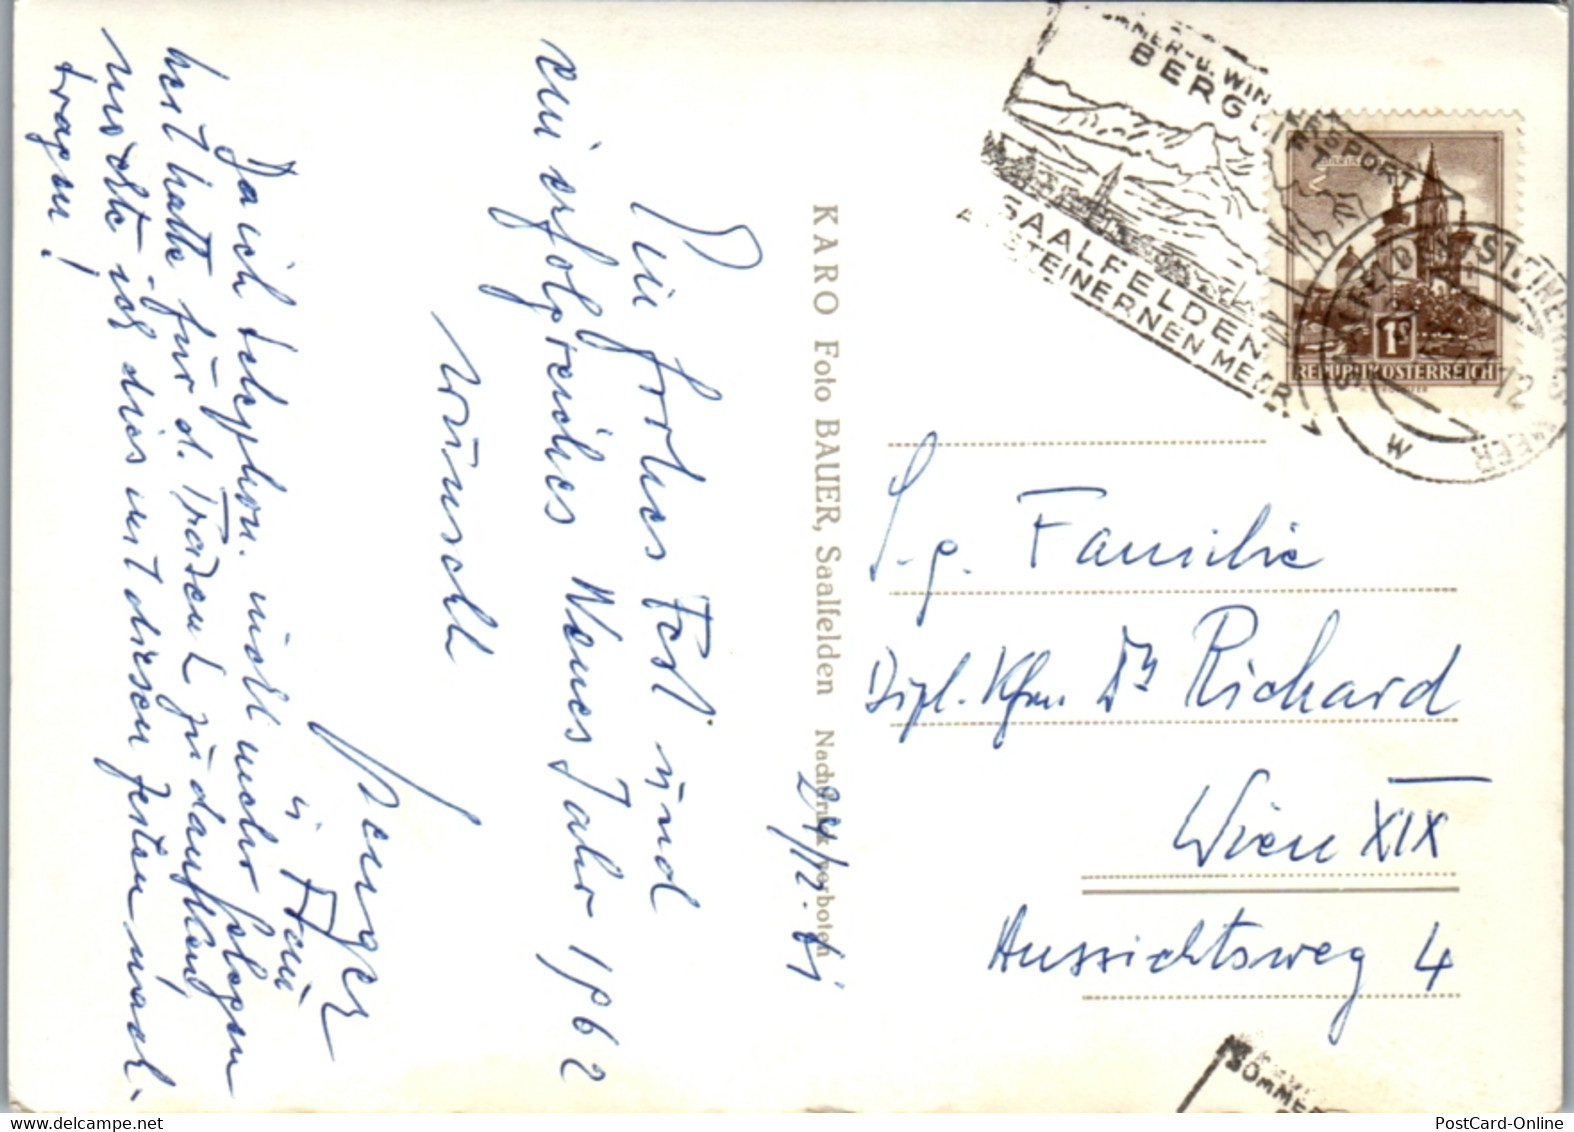 Ein frohes Fest und
ein erfolgreiches Neues Jahr 1962
wünscht
Penyer
u Frau
Da ich telephon. nicht mehr folgen
hert hatte für d. Trafen zu danken,
möchte ich dies mit diesen Zeilen nach-
tragen!
24/12. 61
KARO Foto BAUER, Saalfelden Nachdruck verboten
SOMMER- u. WINTERSPORT
BERG
SAALFELDEN
AM STEINERNEN MEER
SAALFELDEN AM STEINERNEN MEER
12
w
1S
REPUBLIK ÖSTERREICH
S.g. Familie
Dipl. Kfm Dr Richard
Wien XIX
Aussichtsweg 4
SOMMER
PostCard-Online